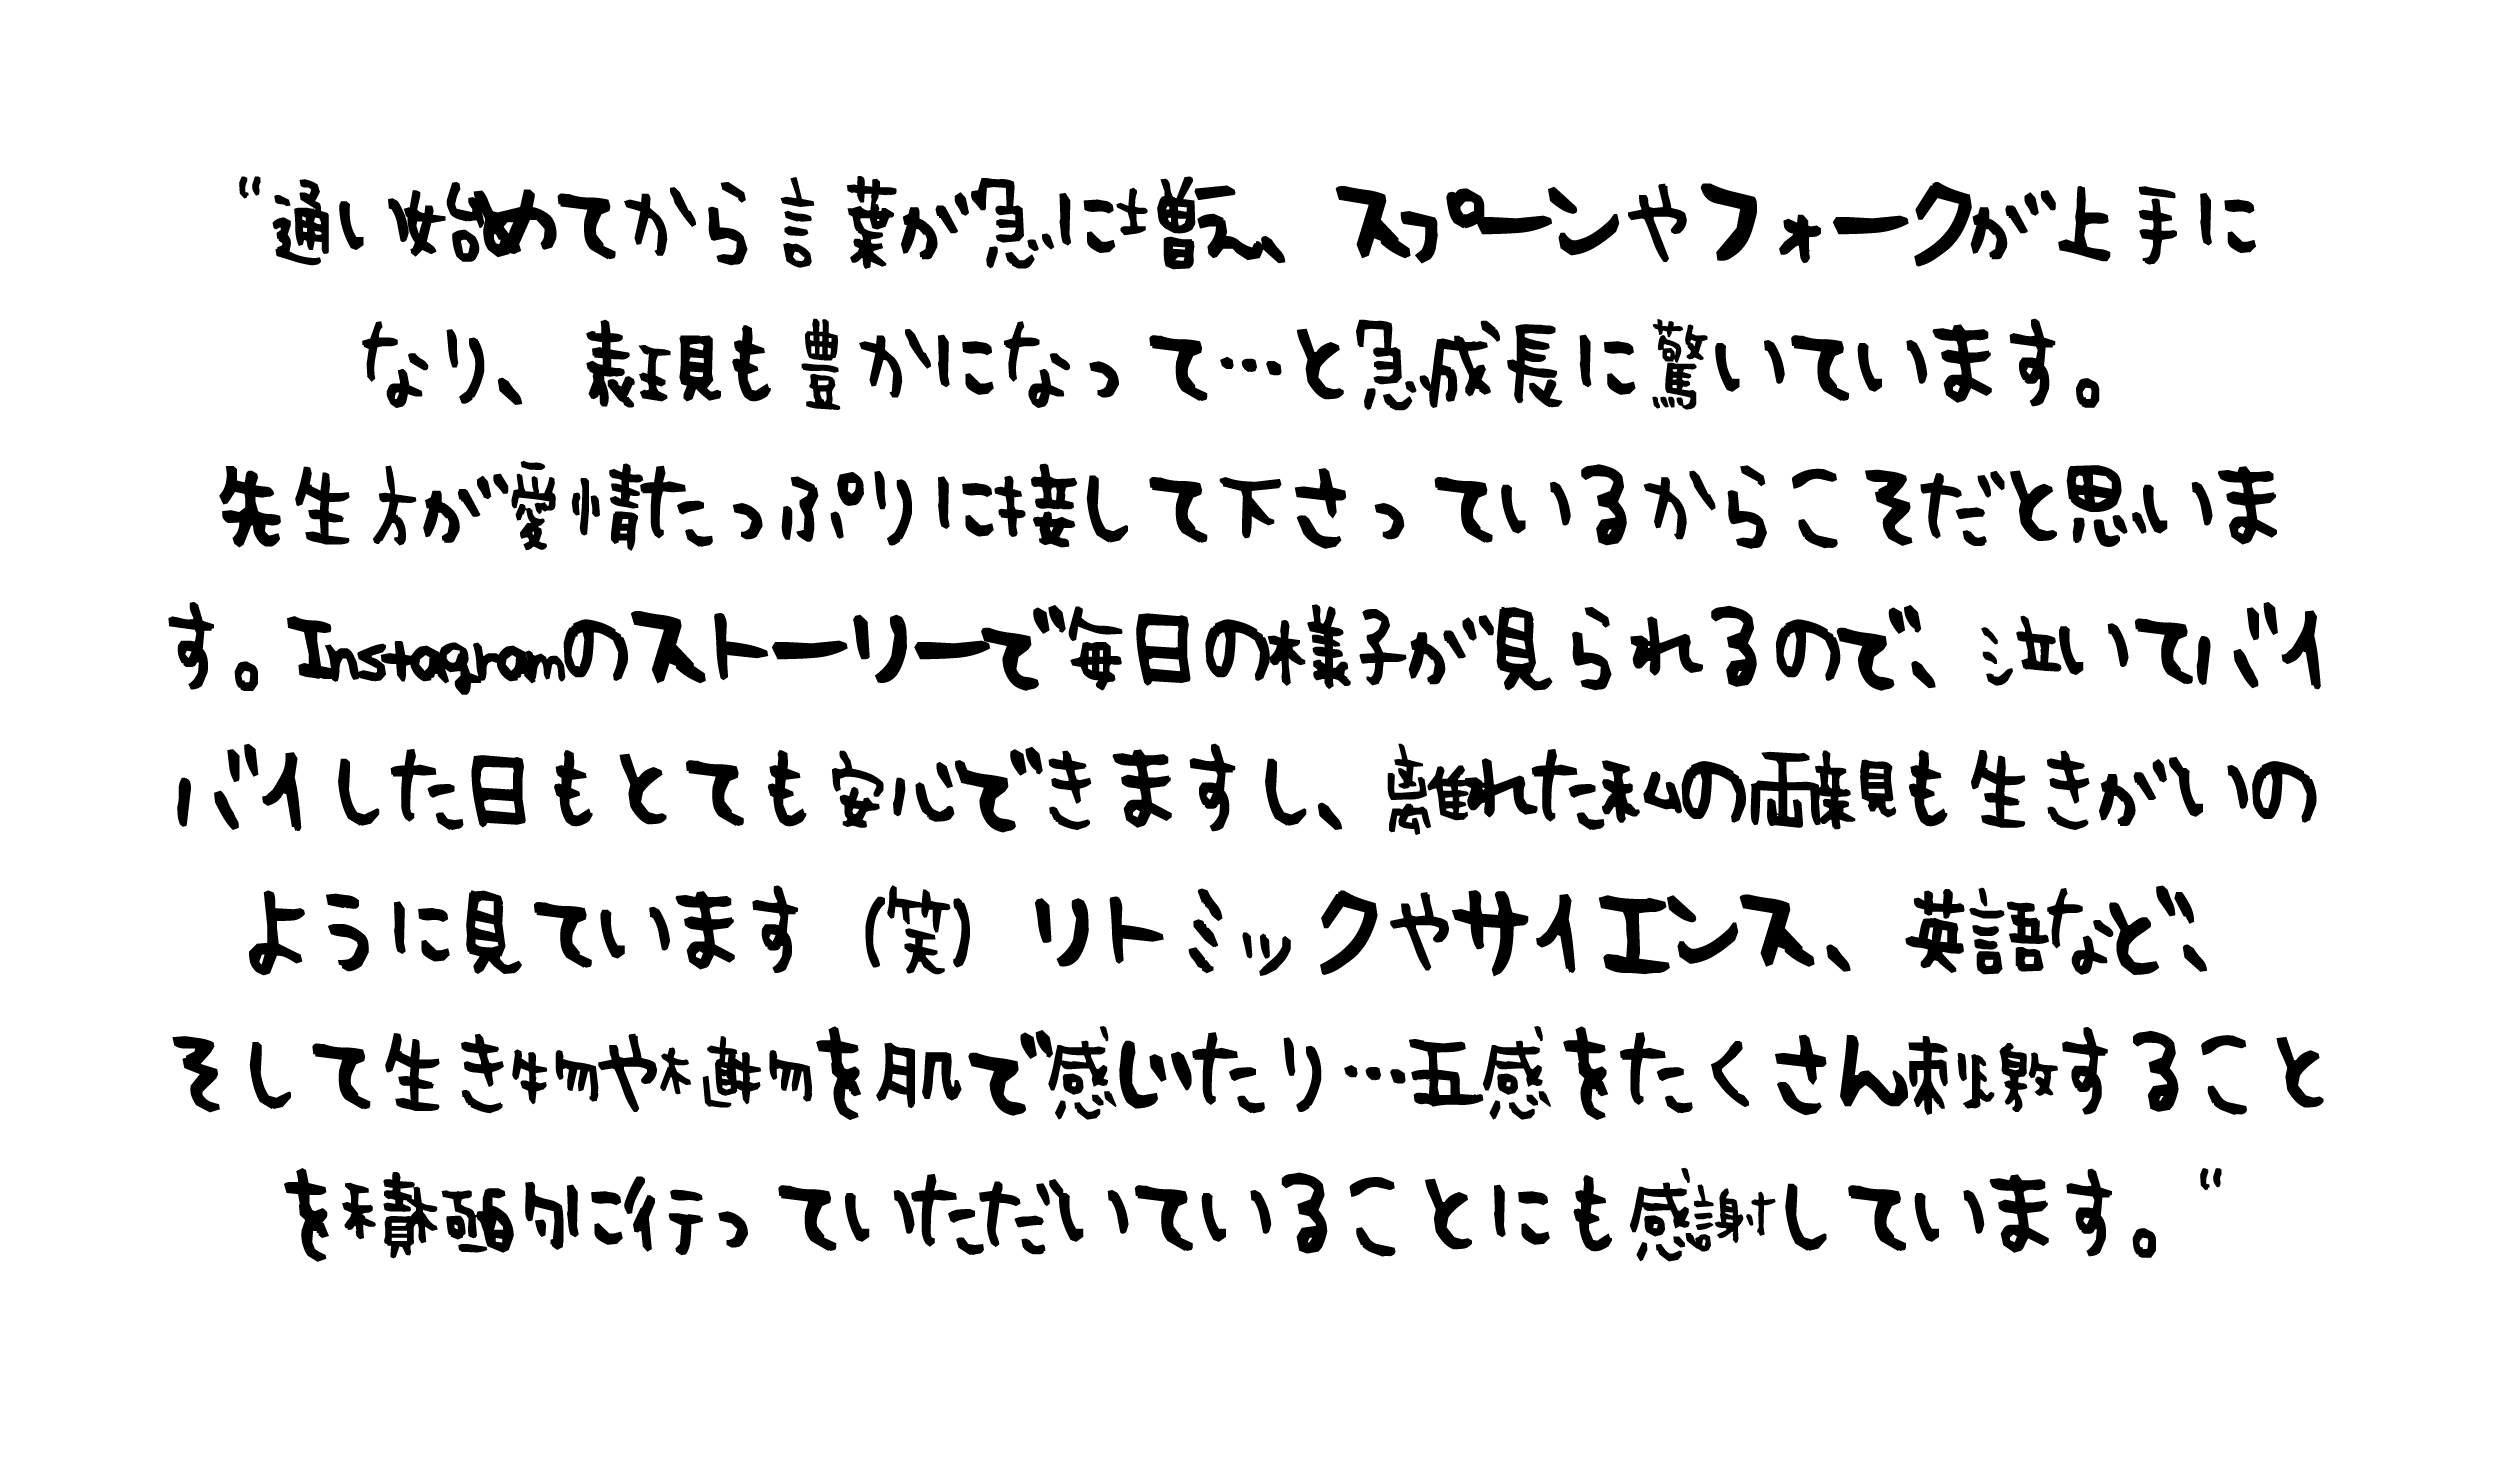 “通い始めてから言葉が急に増え、スプーンやフォークが上手に
なり、表現も豊かになって…と急成長に驚いています。
先生方が愛情たっぷりに接して下さっているからこそだと思いま
す。Instagramのストーリーで毎日の様子が見られるので、泣いてバイ
バイした日もとても安心できますし、離れた孫の出現も生きがいの
ように見ています（笑）リトミックやサイエンス、英語など、
そして生き物や植物を肌で感じたり…五感をたくさん刺激すること
を積極的に行っていただいていることにも感謝しています。“